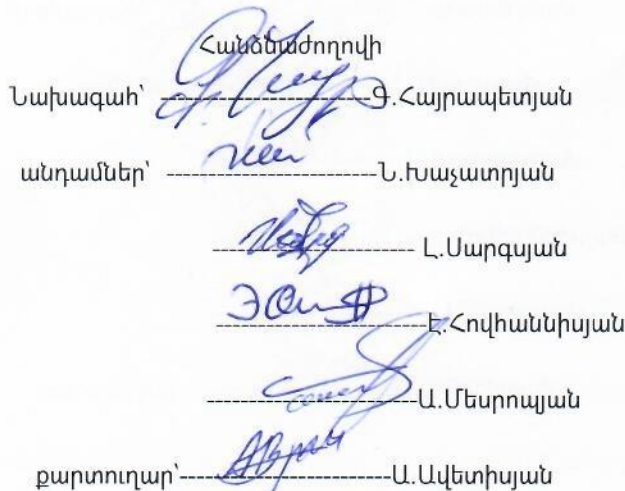 Հանձնաժողովի
Նախագահ՝ ----------------------Գ.Հայրապետյան
անդամներ՝ ----------------------Ն.Խաչատրյան
---------------------- Լ.Սարգսյան
----------------------Է.Հովհաննիսյան
----------------------Ա.Մեսրոպյան
քարտուղար՝----------------------Ա.Ավետիսյան